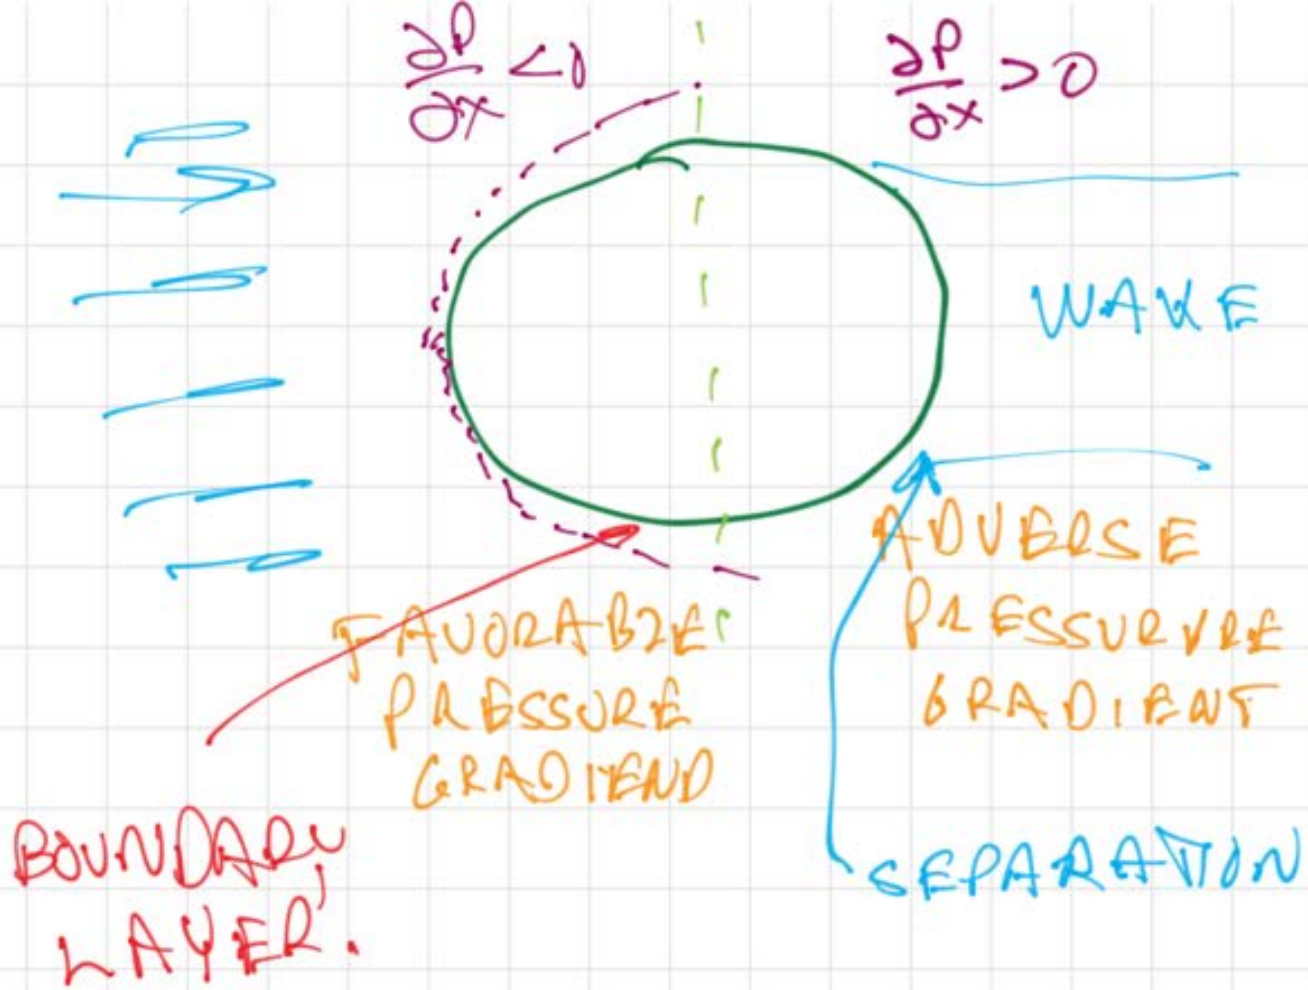 ∂P/∂x <0
∂P/∂x >0
WAKE
ADVERSE
PRESSURURE
GRADIENT
FAVORABLE
PRESSURE
GRADIEND
BOUNDARY
LAYER.
SEPARATION